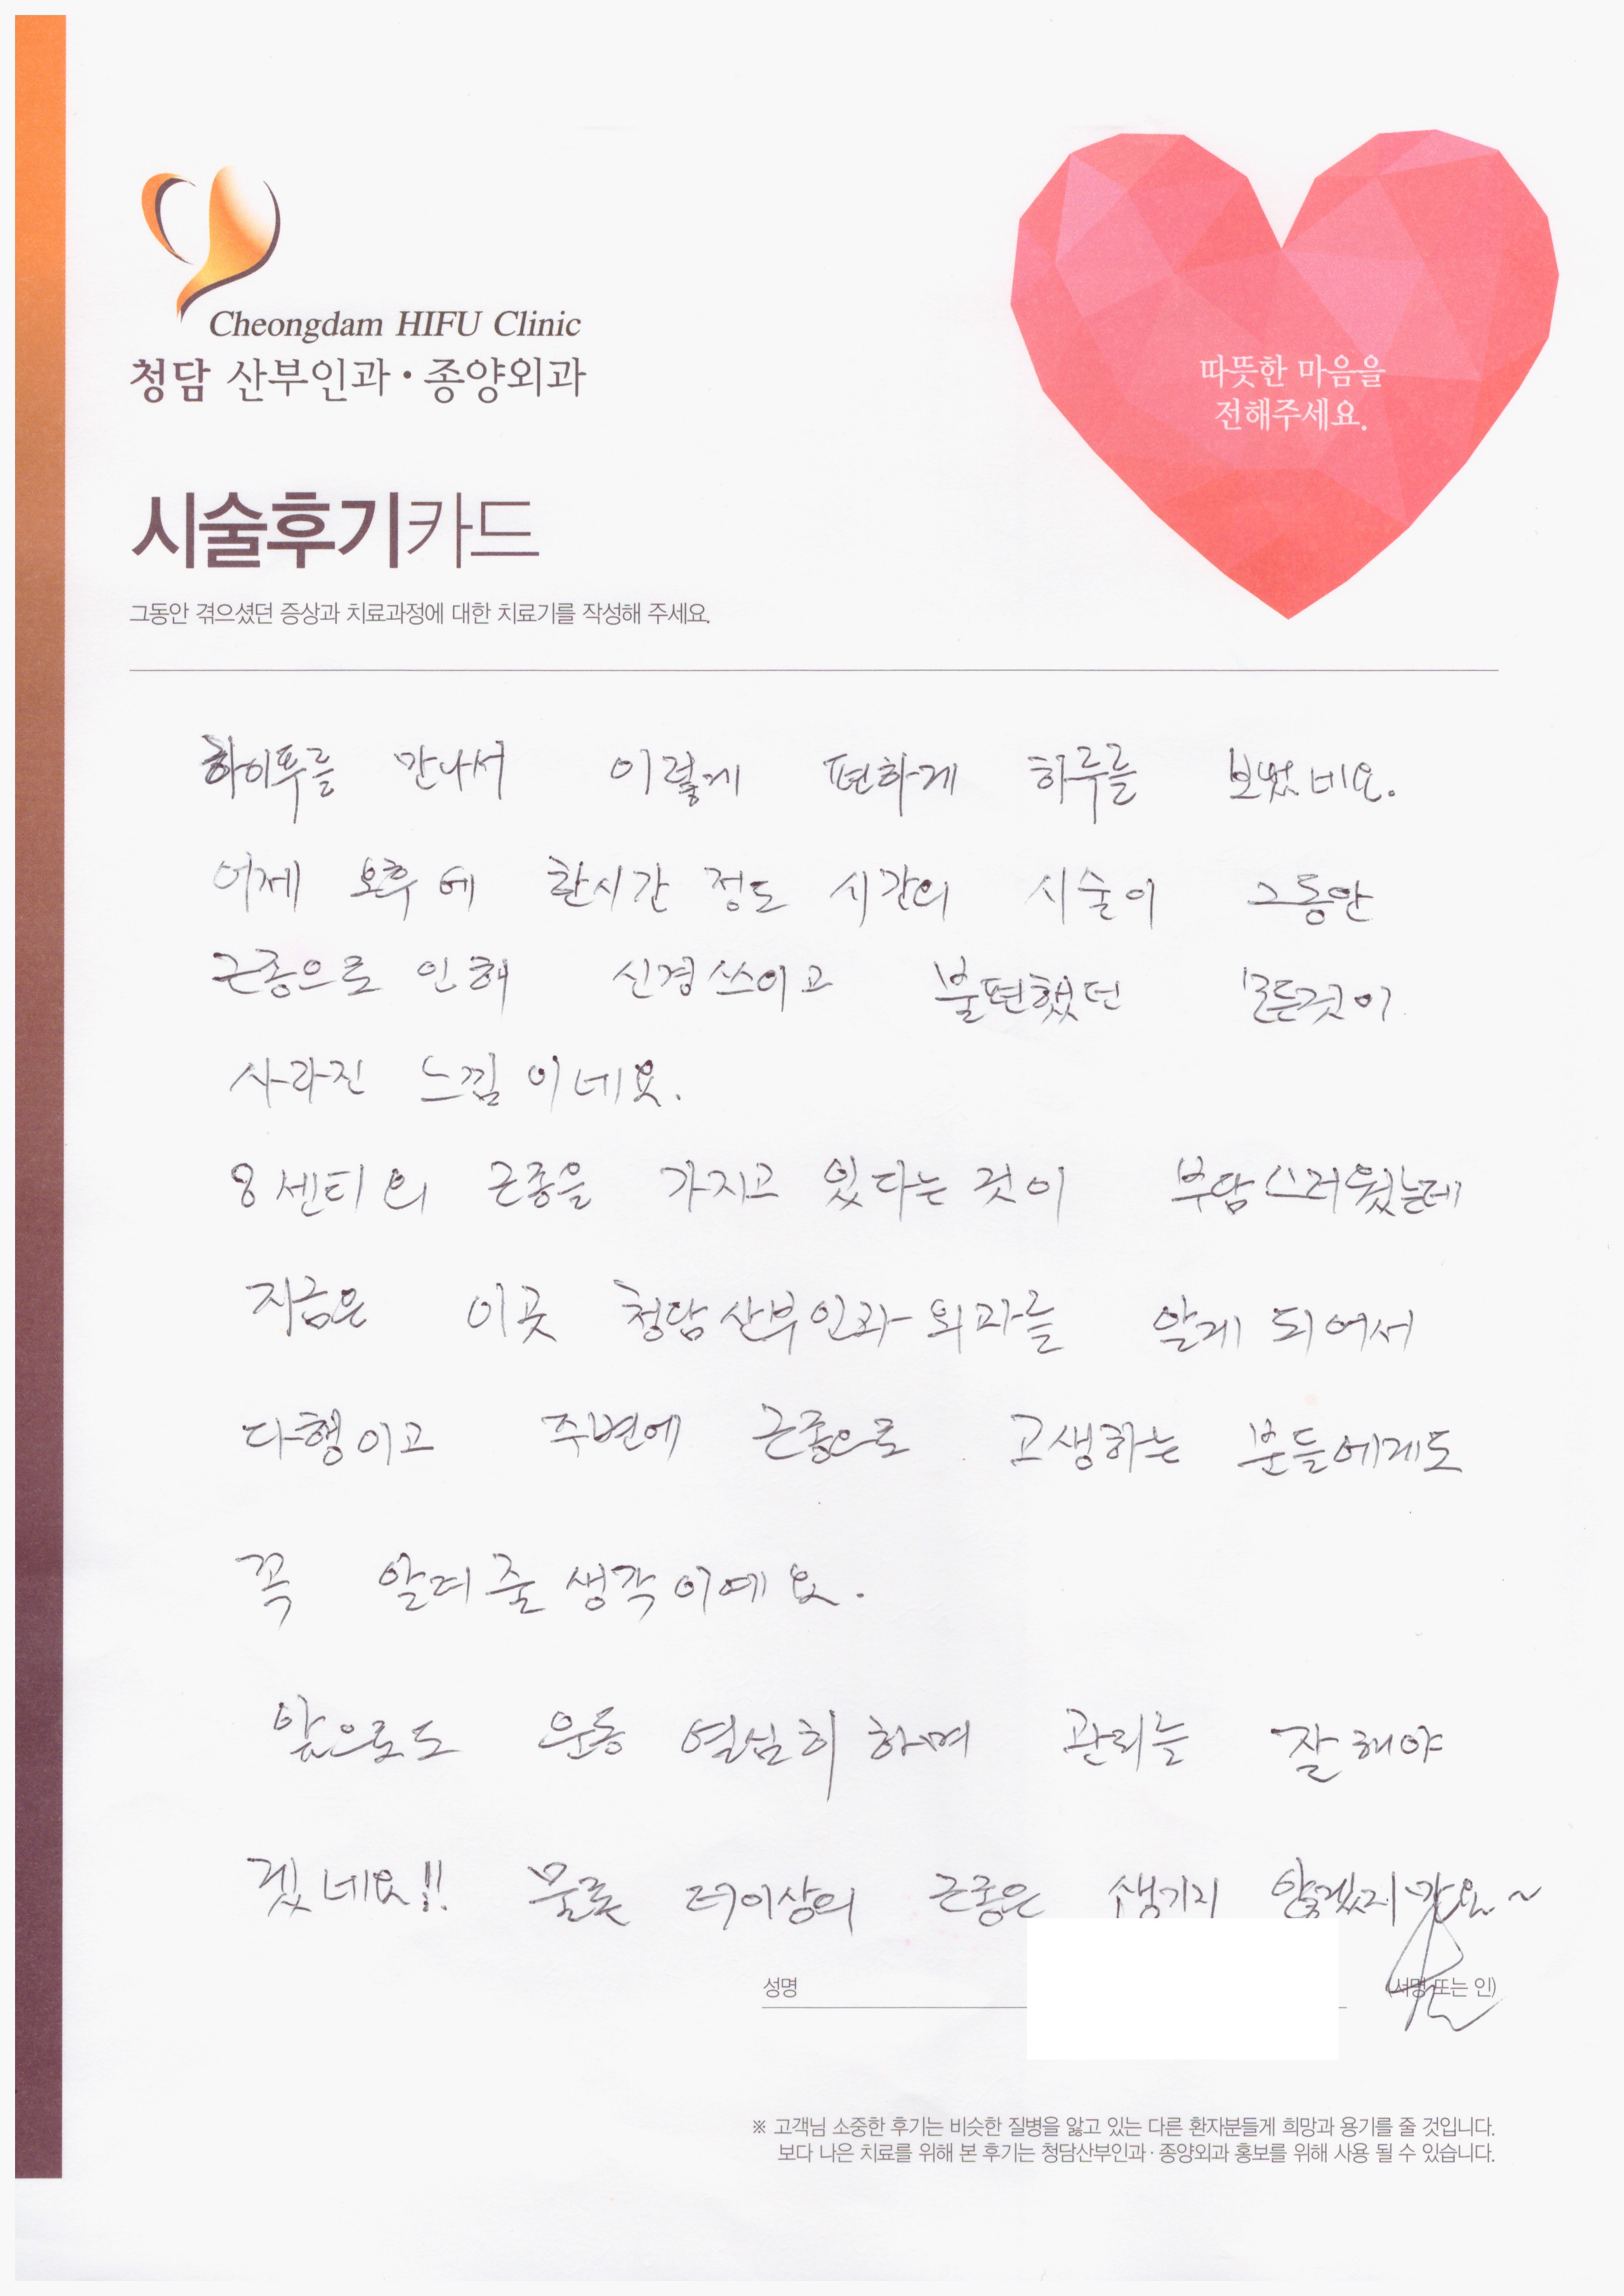 Cheongdam HIFU Clinic
청담 산부인과·종양외과
따뜻한 마음을
전해주세요.
시술후기카드
그동안 겪으셨던 증상과 치료과정에 대한 치료기를 작성해 주세요.
하이푸를 만나서 이렇게 편하게 하루를 보냈네요.
어제 오후에 한시간 정도 시간의 시술이 그동안
근종으로 인해 신경쓰이고 불편했던 모든것이
사라진 느낌이네요.
8센티의 근종을 가지고 있다는것이 부담스러웠는데
지금은 이곳 청담산부인과외과를 알게 되어서
다행이고 주변에 근종으로 고생하는 분들에게도
꼭 알려줄 생각이예요.
앞으로도 운동 열심히 하며 관리는 잘해야
겠네요!! 물론 더이상의 근종은 생기지 않겠지만요~
성명
(서명 또는 인)
※ 고객님 소중한 후기는 비슷한 질병을 앓고 있는 다른 환자분들게 희망과 용기를 줄 것입니다.
보다 나은 치료를 위해 본 후기는 청담산부인과·종양외과 홍보를 위해 사용 될 수 있습니다.